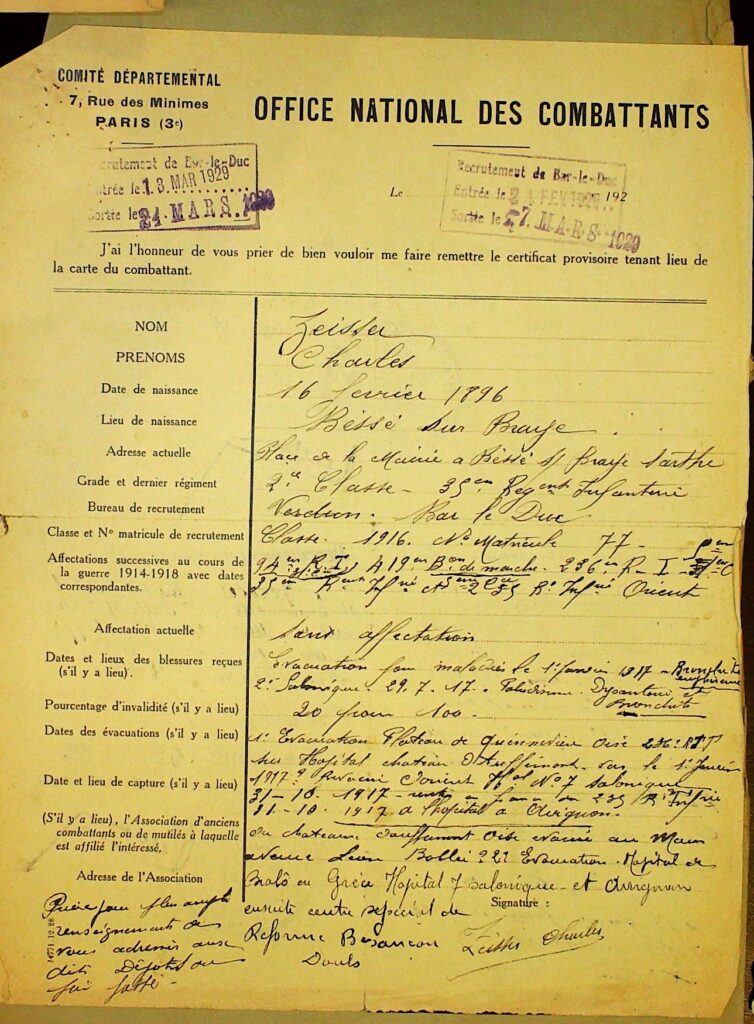 COMITÉ DÉPARTEMENTAL
7, Rue des Minimes
PARIS (3e)
OFFICE NATIONAL DES COMBATTANTS
Recrutement de Bar-le-Duc
Entrée le 13 MAR 1929
Sortie le 21 MARS 1929
Recrutement de Bar-le-Duc
Entrée le 21 FEV
Sortie le 27 MARS 1929
Le 192
J'ai l'honneur de vous prier de bien vouloir me faire remettre le certificat provisoire tenant lieu de
la carte du combattant.
NOM Zeisser
PRENOMS Charles
Date de naissance 16 fevrier 1896
Lieu de naissance Béssé sur Braye
Adresse actuelle Place de la Mairie a Béssé s/ Braye Sarthe
Grade et dernier régiment 2e Classe - 35em Regent Infanterie
Bureau de recrutement Verdun - Bar le Duc
Classe et No matricule de recrutement Classe 1916 No Matricule 77
Affectations successives au cours de
la guerre 1914-1918 avec dates
correspondantes.
94em R.I. A 19em Bon de marche. 236em R-I
35em Orient
Affectation actuelle Sans affectation
Dates et lieux des blessures reçues
(s'il y a lieu).
Evacuation pour maladies le 1er Janvier 1917 - Bronchite
2e Salonique - 29.7.17 - Paludisme - Dysenterie et
Bronchite
Pourcentage d'invalidité (s'il y a lieu) 20 pour 100
Dates des évacuations (s'il y a lieu) 1e Evacuation Plateau de Quennevières Oise 236e
sur Hopital chateau le 1er Janvier
Date et lieu de capture (s'il y a lieu) 1917 Orient No 7 Salonique
31-10-1917
31-10-1917 a l'hopital a Avignon.
(S'il y a lieu), l'Association d'anciens
combattants ou de mutilés à laquelle
est affilié l'intéressé.
du chateau Oise évacué au Mans
avenue Leon Bollée 221 Evacuation Hopital de
Adresse de l'Association
en Grèce Hopital 7 Salonique - et Avignon
Signature :
ensuite centre spécial de
Reforme Besancon Zeisser Charles
Doubs
Prière pour plus ample
renseignements de
vous adresser aux
dits Dépôts
14771-12-28